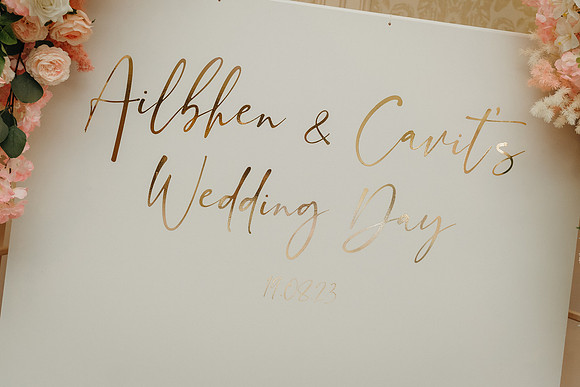 Ailbhen & Cavit's
Wedding Day
19.08.23